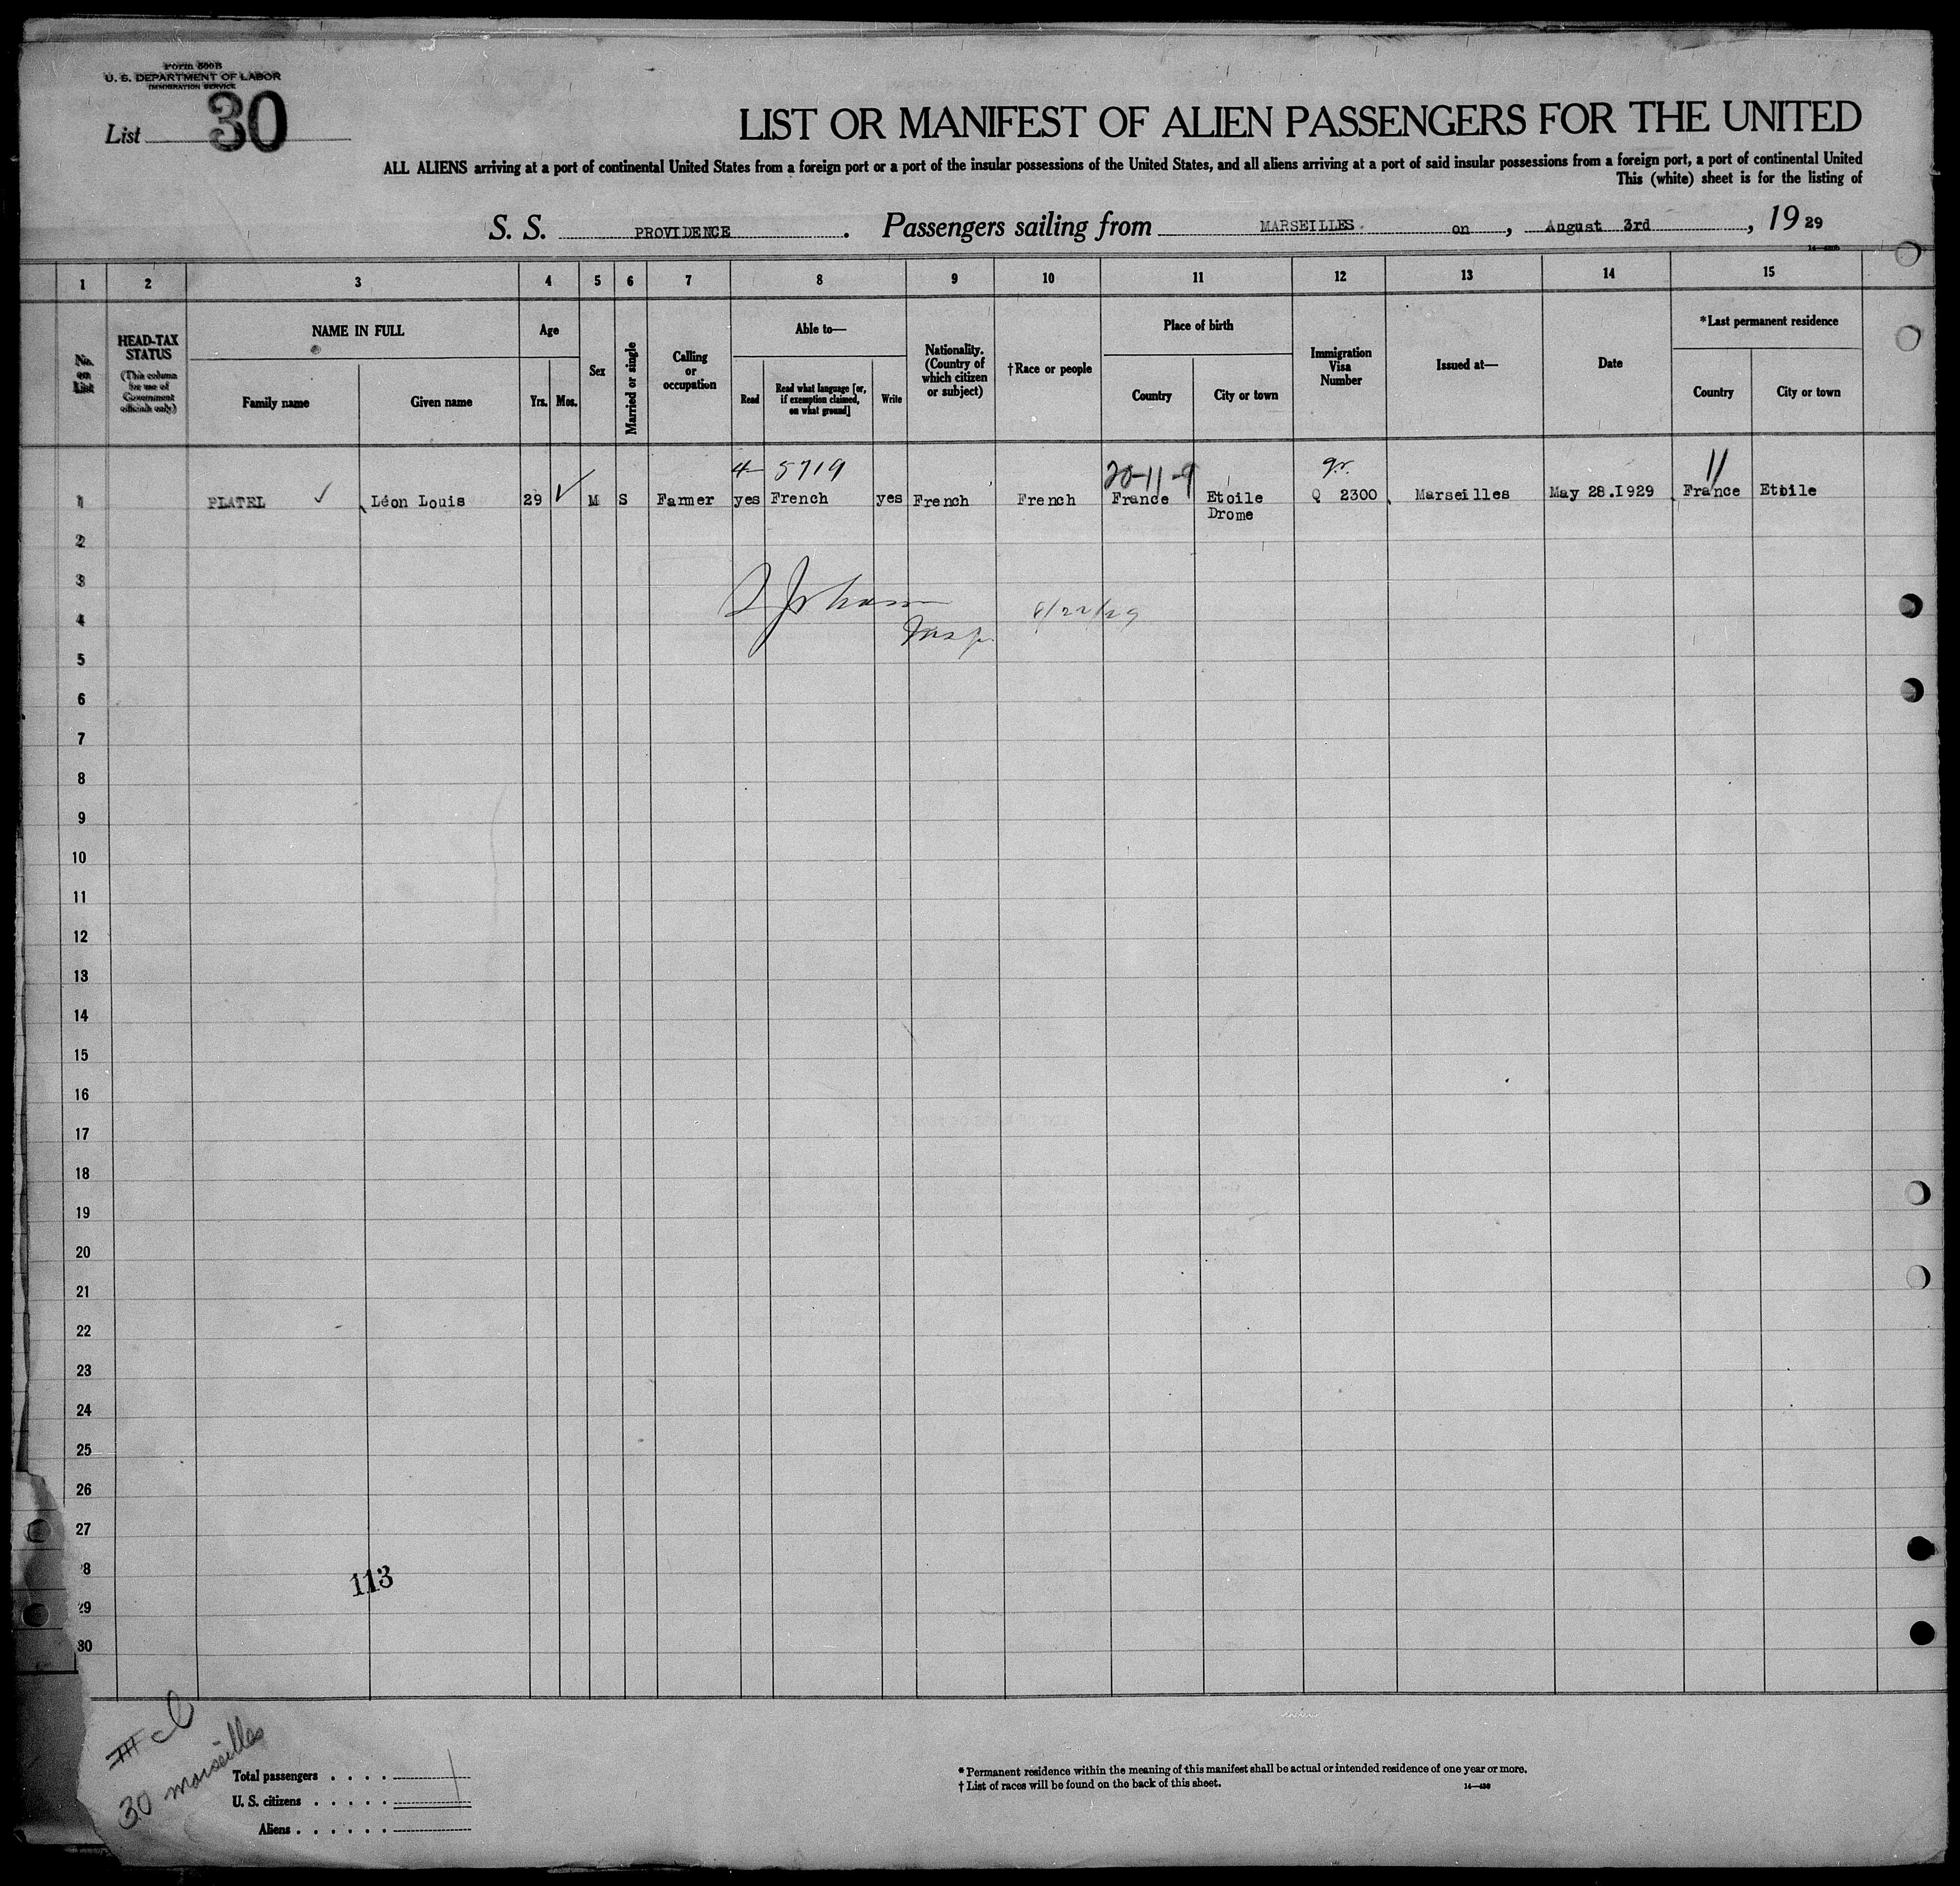 Form 500B
U. S. DEPARTMENT OF LABOR
IMMIGRATION SERVICE
List 30
LIST OR MANIFEST OF ALIEN PASSENGERS FOR THE UNITED
ALL ALIENS arriving at a port of continental United States from a foreign port or a port of the insular possessions of the United States, and all aliens arriving at a port of said insular possessions from a foreign port, a port of continental United
This (white) sheet is for the listing of
S. S. PROVIDENCE. Passengers sailing from MARSEILLES. on, August 3rd, 1929
1 2 3 4 5 6 7 8 9 10 11 12 13 14 15
No. on List
HEAD-TAX STATUS
(This column for use of Government officials only)
NAME IN FULL
Family name
Given name
Age
Yrs. Mos.
Sex
Married or single
Calling or occupation
Able to—
Read
Read what language [or, if exemption claimed, on what ground]
Write
Nationality. (Country of which citizen or subject)
†Race or people
Place of birth
Country
City or town
Immigration Visa Number
Issued at—
Date
*Last permanent residence
Country
City or town
4 5719 20-11-9 11
1 PLATEL ✓ Léon Louis 29 ✓ M S Farmer yes French yes French French France Etoile Q 2300 Marseilles May 28.I929 France Etoile
Drome
2
3
4
Insp. 8/22/29
5
6
7
8
9
10
11
12
13
14
15
16
17
18
19
20
21
22
23
24
25
26
27
28
113
29
30
30 Marseilles
Total passengers . . . .
U. S. citizens . . . . .
Aliens . . . . . .
* Permanent residence within the meaning of this manifest shall be actual or intended residence of one year or more.
† List of races will be found on the back of this sheet.